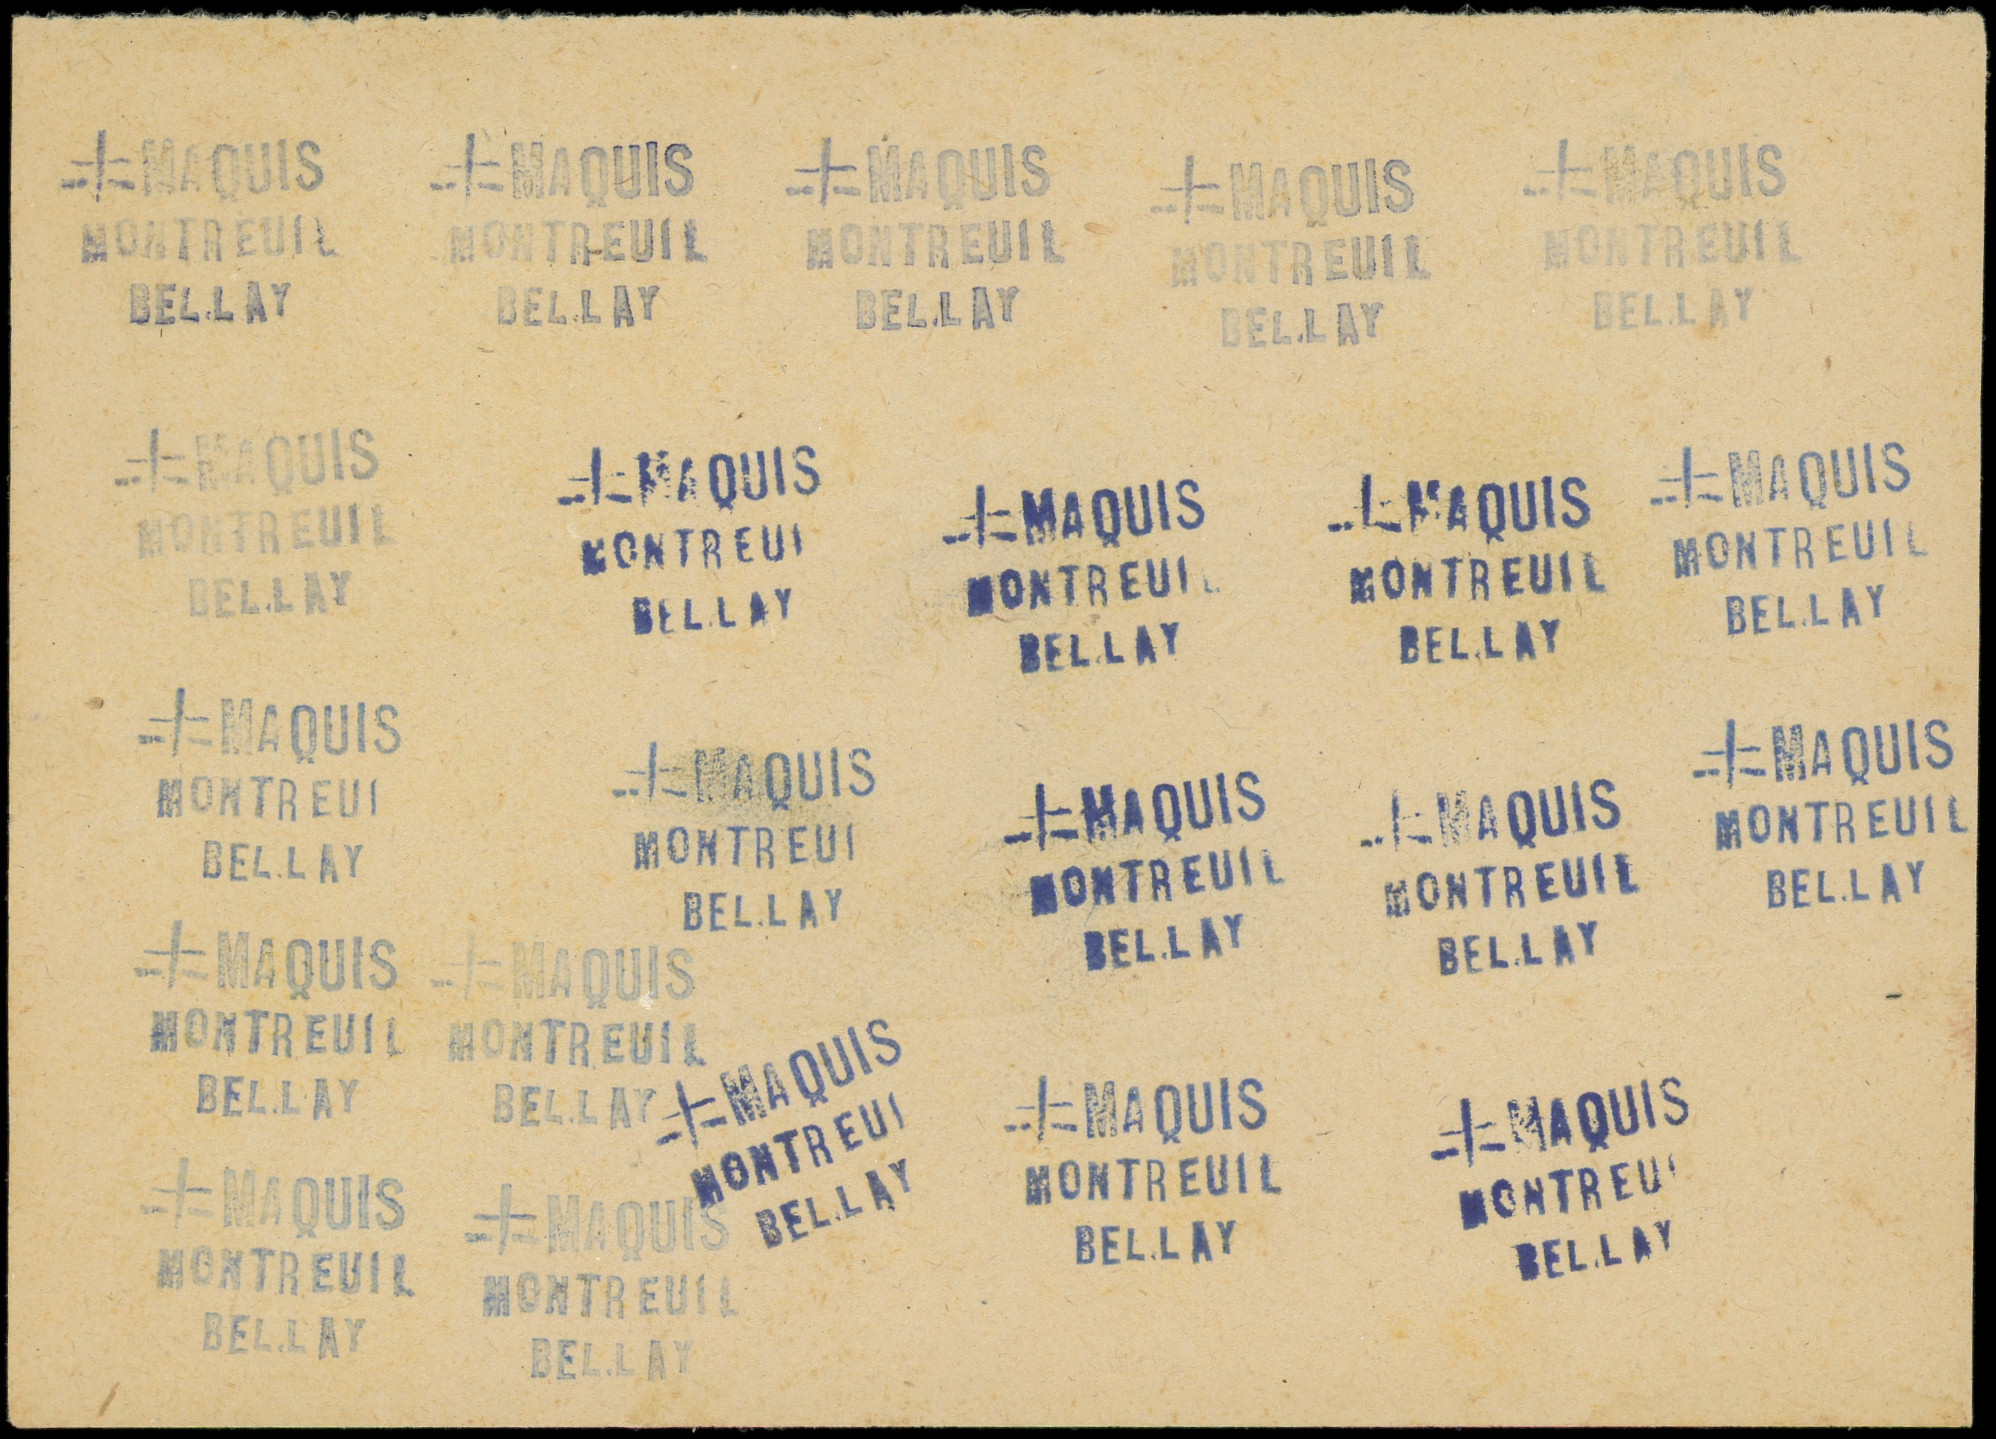 MAQUIS
MONTREUIL
BEL.LAY
MAQUIS
MONTREUIL
BEL.LAY
MAQUIS
MONTREUIL
BEL.LAY
MAQUIS
MONTREUIL
BEL.LAY
MAQUIS
MONTREUIL
BEL.LAY
MAQUIS
MONTREUIL
BEL.LAY
MAQUIS
MONTREUI
BEL.LAY
MAQUIS
MONTREUIL
BEL.LAY
MAQUIS
MONTREUIL
BEL.LAY
MAQUIS
MONTREUIL
BEL.LAY
MAQUIS
MONTREUI
BEL.LAY
MAQUIS
MONTREUI
BEL.LAY
MAQUIS
MONTREUIL
BEL.LAY
MAQUIS
MONTREUIL
BEL.LAY
MAQUIS
MONTREUIL
BEL.LAY
MAQUIS
MONTREUIL
BEL.LAY
MAQUIS
MONTREUIL
BEL.LAY
MAQUIS
MONTREUI
BEL.LAY
MAQUIS
MONTREUIL
BEL.LAY
MAQUIS
MONTREUI
BEL.LAY
MAQUIS
MONTREUIL
BEL.LAY
MAQUIS
MONTREUIL
BEL.LAY